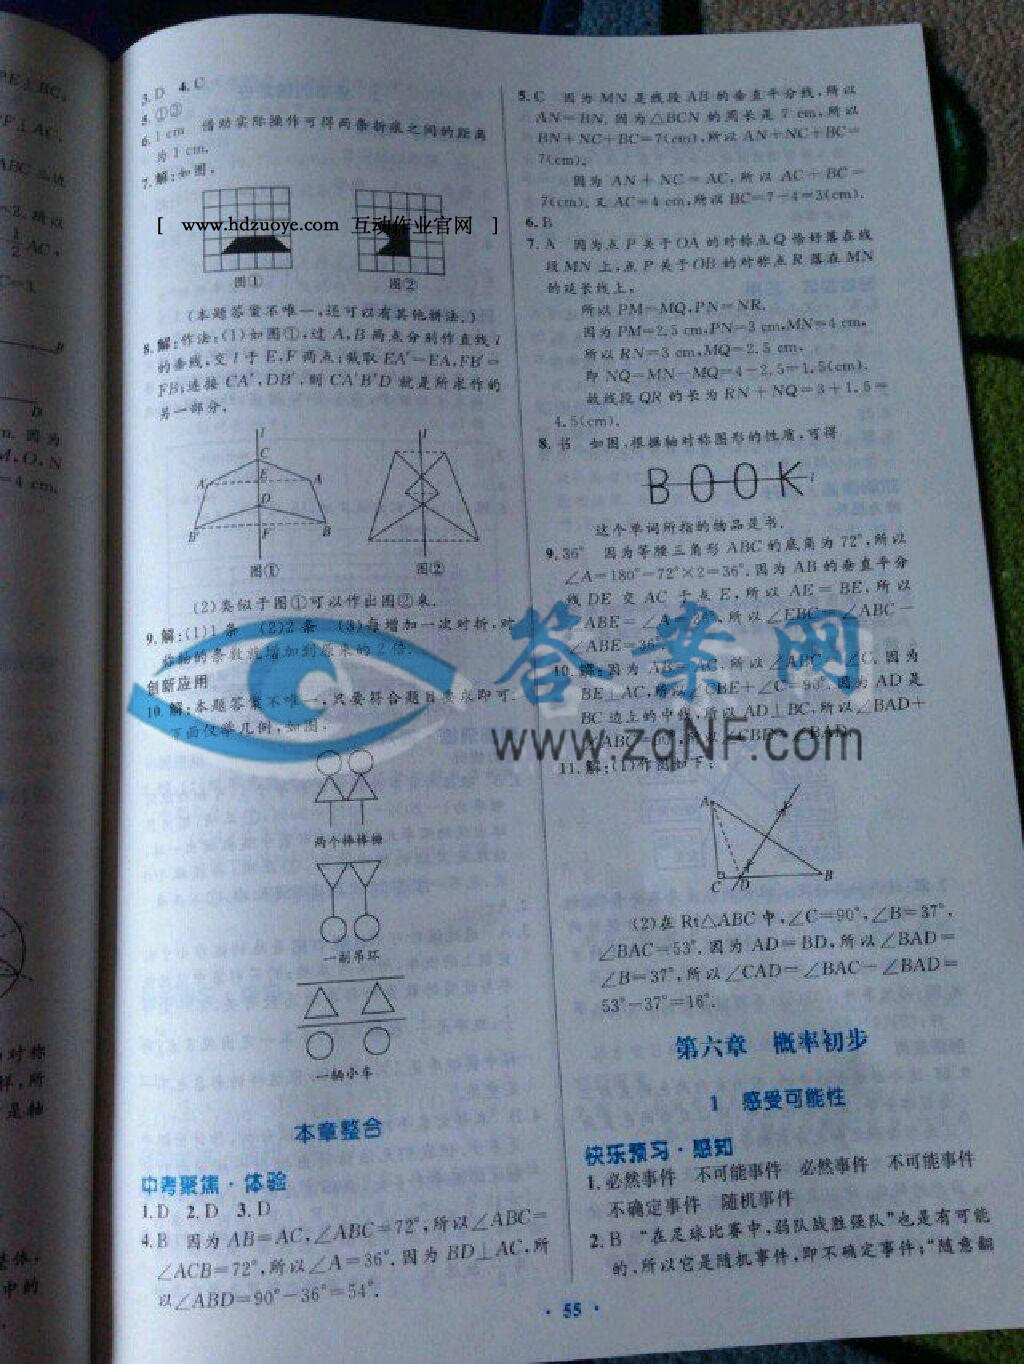 3. D 4. C
5. ①③
6. 1 cm 借助实际操作可得两条折痕之间的距离
为1 cm.
7. 解:如图.
[ www.hdzuoye.com 互动作业官网 ]
图① 图②
(本题答案不唯一,还可以有其他拼法.)
8. 解:作法:(1)如图①,过A,B两点分别作直线l
的垂线,交l于E,F两点;截取EA'=EA,FB'=
FB;连接CA',DB',则CA'B'D就是所求作的
另一部分.
l
C
E
A' A
D
B' F B
l
图① 图②
(2)类似于图①可以作出图②来.
9. 解:(1)1条 (2)2条 (3)每增加一次对折,对
称轴的条数就增加到原来的2倍.
创新应用
10. 解:本题答案不唯一,只要符合题目要求即可.
下面仅举几例,如图.
两个棒棒糖
一副吊环
一辆小车
本章整合
中考聚焦·体验
1. D 2. D 3. D
4. B 因为AB=AC,∠ABC=72°,所以∠ABC=
∠ACB=72°,所以∠A=36°.因为BD⊥AC,所
以∠ABD=90°-36°=54°.
5. C 因为MN是线段AB的垂直平分线,所以
AN=BN.因为△BCN的周长是7 cm,所以
BN+NC+BC=7(cm),所以AN+NC+BC=
7(cm).
因为AN+NC=AC,所以AC+BC=
7(cm).又AC=4 cm,所以BC=7-4=3(cm).
6. B
7. A 因为点P关于OA的对称点Q恰好落在线
段MN上,点P关于OB的对称点R落在MN
的延长线上,
所以PM=MQ,PN=NR.
因为PM=2.5 cm,PN=3 cm,MN=4 cm,
所以RN=3 cm,MQ=2.5 cm,
即NQ=MN-MQ=4-2.5=1.5(cm).
故线段QR的长为RN+NQ=3+1.5=
4.5(cm).
8. 书 如图,根据轴对称图形的性质,可得
BOOK l
这个单词所指的物品是书.
9. 36° 因为等腰三角形ABC的底角为72°,所以
∠A=180°-72°×2=36°.因为AB的垂直平分
线DE交AC于点E,所以AE=BE,所以
∠ABE=∠A=36°,所以∠EBC=∠ABC-
∠ABE=36°.
10. 解:因为AB=AC,所以∠ABC=∠C.因为
BE⊥AC,所以∠CBE+∠C=90°.因为AD是
BC边上的中线,所以AD⊥BC,所以∠BAD+
∠ABC=90°,所以∠CBE=∠BAD.
答案网
www.zqNF.com
11. 解:(1)作图如下:
A
C D B
(2)在Rt△ABC中,∠C=90°,∠B=37°,
∠BAC=53°.因为AD=BD,所以∠BAD=
∠B=37°,所以∠CAD=∠BAC-∠BAD=
53°-37°=16°.
第六章 概率初步
1 感受可能性
快乐预习·感知
1. 必然事件 不可能事件 必然事件 不可能事件
不确定事件 随机事件
2. B “在足球比赛中,弱队战胜强队”也是有可能
的,所以它是随机事件,即不确定事件;“随意翻
· 55 ·